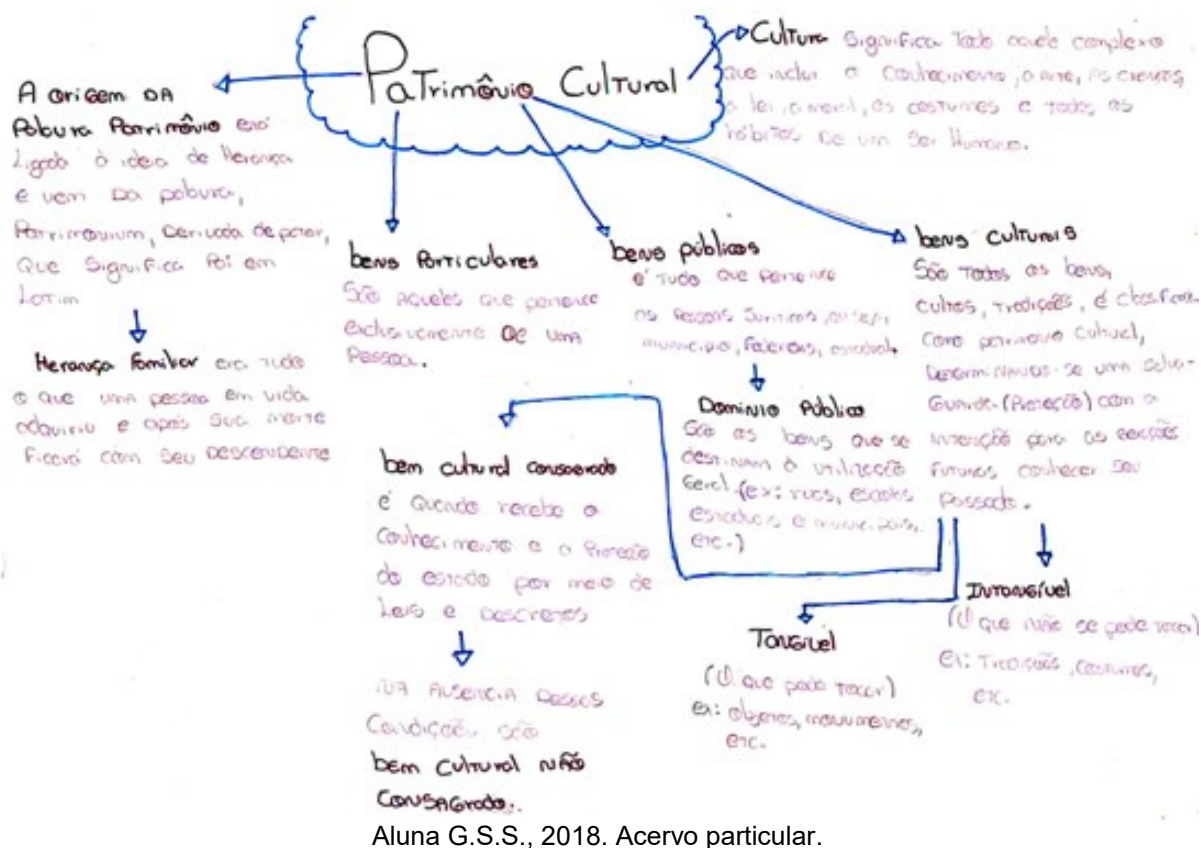 Patrimônio Cultural
Cultura significa todo aquele complexo
que inclui o conhecimento, a arte, as crenças,
a lei, a moral, os costumes e todos os
hábitos de um ser humano.
A origem da
Palavra Patrimônio está
Ligada à ideia de Herança
e vem da palavra,
Patrimonium, Derivada de pater,
Que significa Pai em
Latim
Herança familiar era tudo
o que uma pessoa em vida
adquiriu e após sua morte
ficará com seu descendente
bens Particulares
São aqueles que pertence
exclusivamente de uma
Pessoa.
bens públicos
é tudo que pertence
as Pessoas Jurídicas, ou seja,
município, federais, estadual.
Domínio Público
São os bens que se
destinam à utilização
Geral. (ex: ruas, escolas
estaduais e municipais,
etc.)
bens culturais
São todos os bens,
cultos, tradições, é
como cultural,
Determinando-se uma salva-
Guarda (Proteção) com a
intenção para as gerações
futuras conhecer seu
passado.
bem cultural consagrado
é Quando recebe o
conhecimento e a Proteção
do estado por meio de
Leis e Descretos
NA AUSENCIA Dessas
Condição são
bem Cultural NÃO
CONSAGrado.
Tangível
(O que pode tocar)
ex: objetos, monumentos,
etc.
Intangível
(O que não se pode tocar)
ex: Tradições, costumes,
etc.
Aluna G.S.S., 2018. Acervo particular.